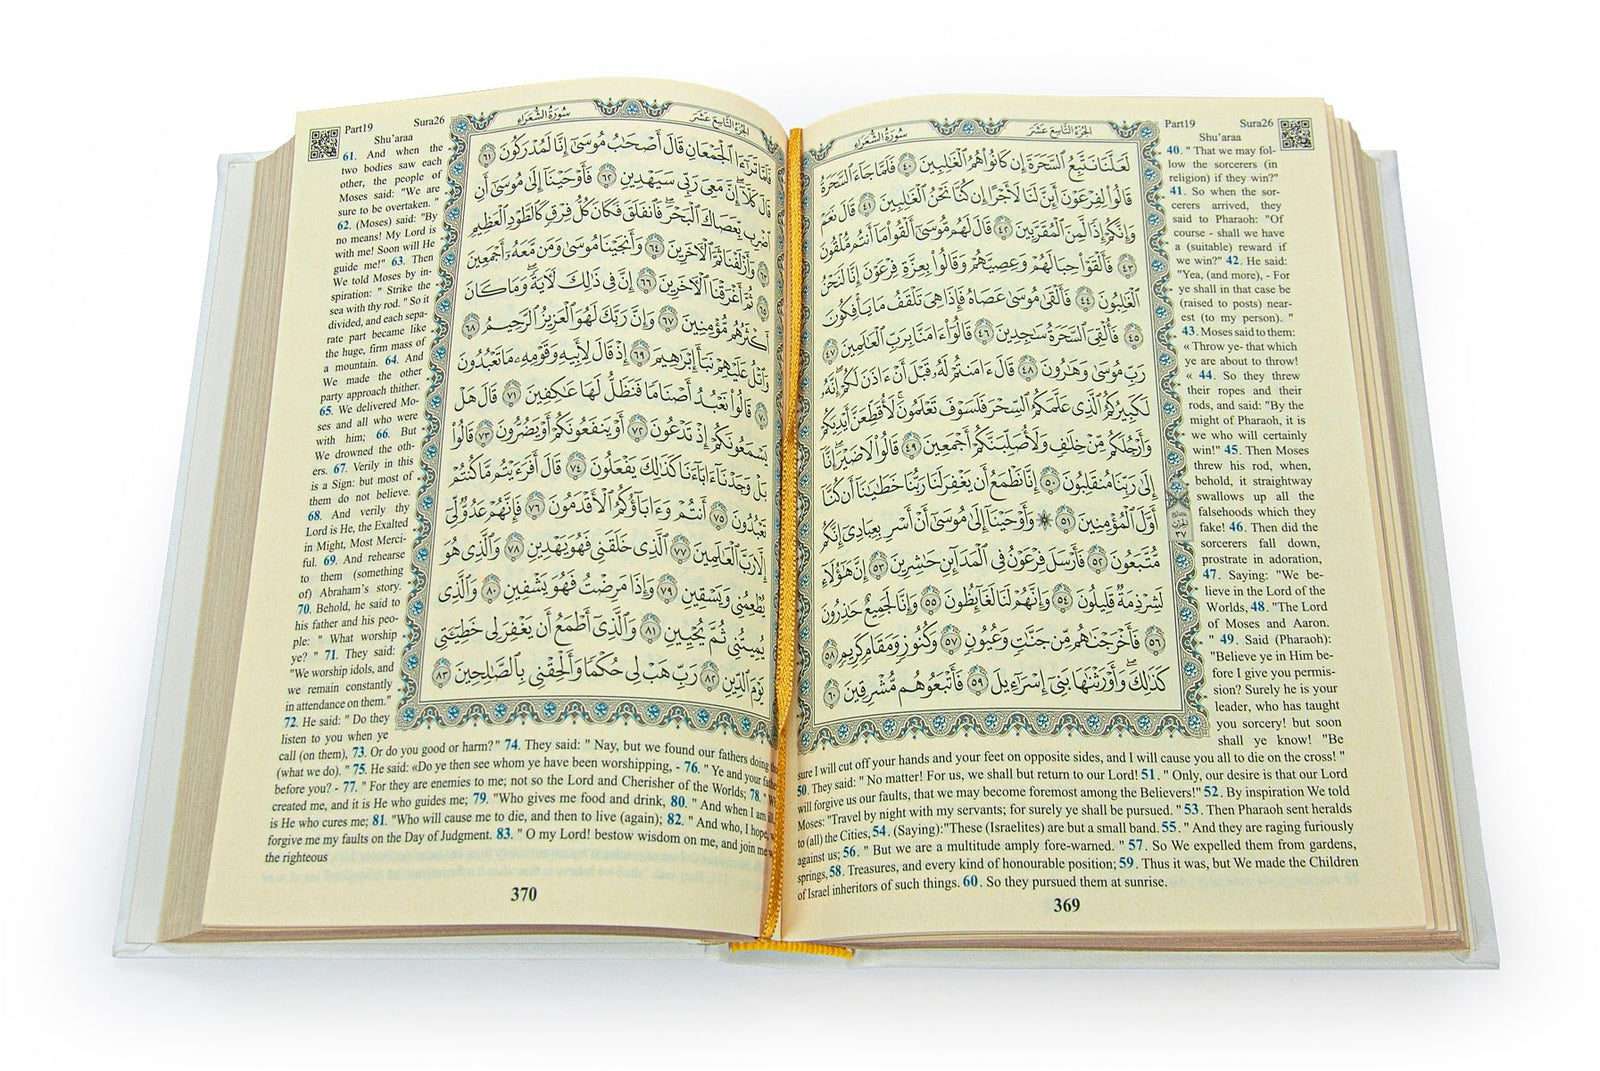 Part19 Sura26
Shu'araa
الجزء التاسع عشر
سورة الشعراء
لَعَلَّنَا نَتَّبِعُ ٱلسَّحَرَةَ إِن كَانُوا۟ هُمُ ٱلْغَٰلِبِينَ ٤٠ فَلَمَّا جَآءَ ٱلسَّحَرَةُ
قَالُوا۟ لِفِرْعَوْنَ أَئِنَّ لَنَا لَأَجْرًا إِن كُنَّا نَحْنُ ٱلْغَٰلِبِينَ ٤١ قَالَ نَعَمْ
وَإِنَّكُمْ إِذًا لَّمِنَ ٱلْمُقَرَّبِينَ ٤٢ قَالَ لَهُم مُّوسَىٰٓ أَلْقُوا۟ مَآ أَنتُم مُّلْقُونَ
٤٣ فَأَلْقَوْا۟ حِبَالَهُمْ وَعِصِيَّهُمْ وَقَالُوا۟ بِعِزَّةِ فِرْعَوْنَ إِنَّا لَنَحْنُ
ٱلْغَٰلِبُونَ ٤٤ فَأَلْقَىٰ مُوسَىٰ عَصَاهُ فَإِذَا هِىَ تَلْقَفُ مَا يَأْفِكُونَ
٤٥ فَأُلْقِىَ ٱلسَّحَرَةُ سَٰجِدِينَ ٤٦ قَالُوٓا۟ ءَامَنَّا بِرَبِّ ٱلْعَٰلَمِينَ ٤٧
رَبِّ مُوسَىٰ وَهَٰرُونَ ٤٨ قَالَ ءَامَنتُمْ لَهُۥ قَبْلَ أَنْ ءَاذَنَ لَكُمْ إِنَّهُۥ
لَكَبِيرُكُمُ ٱلَّذِى عَلَّمَكُمُ ٱلسِّحْرَ فَلَسَوْفَ تَعْلَمُونَ لَأُقَطِّعَنَّ أَيْدِيَكُمْ
وَأَرْجُلَكُم مِّنْ خِلَٰفٍ وَلَأُصَلِّبَنَّكُمْ أَجْمَعِينَ ٤٩ قَالُوا۟ لَا ضَيْرَ إِنَّآ
إِلَىٰ رَبِّنَا مُنقَلِبُونَ ٥٠ إِنَّا نَطْمَعُ أَن يَغْفِرَ لَنَا رَبُّنَا خَطَٰيَٰنَآ أَن كُنَّآ
أَوَّلَ ٱلْمُؤْمِنِينَ ٥١ ۞ وَأَوْحَيْنَآ إِلَىٰ مُوسَىٰٓ أَنْ أَسْرِ بِعِبَادِىٓ إِنَّكُم
مُّتَّبَعُونَ ٥٢ فَأَرْسَلَ فِرْعَوْنُ فِى ٱلْمَدَآئِنِ حَٰشِرِينَ ٥٣ إِنَّ هَٰٓؤُلَآءِ
لَشِرْذِمَةٌ قَلِيلُونَ ٥٤ وَإِنَّهُمْ لَنَا لَغَآئِظُونَ ٥٥ وَإِنَّا لَجَمِيعٌ حَٰذِرُونَ
٥٦ فَأَخْرَجْنَٰهُم مِّن جَنَّٰتٍ وَعُيُونٍ ٥٧ وَكُنُوزٍ وَمَقَامٍ كَرِيمٍ ٥٨
كَذَٰلِكَ وَأَوْرَثْنَٰهَا بَنِىٓ إِسْرَٰٓءِيلَ ٥٩ فَأَتْبَعُوهُم مُّشْرِقِينَ ٦٠
الحزب
٣٧
40. " That we may fol-
low the sorcerers (in
religion) if they win?"
41. So when the sor-
cerers arrived, they
said to Pharaoh: "Of
course - shall we have
a (suitable) reward if
we win?" 42. He said:
"Yea, (and more), - For
ye shall in that case be
(raised to posts) near-
est (to my person). "
43. Moses said to them:
« Throw ye- that which
ye are about to throw!
« 44. So they threw
their ropes and their
rods, and said: "By the
might of Pharaoh, it is
we who will certainly
win!" 45. Then Moses
threw his rod, when,
behold, it straightway
swallows up all the
falsehoods which they
fake! 46. Then did the
sorcerers fall down,
prostrate in adoration,
47. Saying: "We be-
lieve in the Lord of the
Worlds, 48. "The Lord
of Moses and Aaron.
" 49. Said (Pharaoh):
"Believe ye in Him be-
fore I give you permis-
sion? Surely he is your
leader, who has taught
you sorcery! but soon
shall ye know! "Be
sure I will cut off your hands and your feet on opposite sides, and I will cause you all to die on the cross! "
50. They said: " No matter! For us, we shall but return to our Lord! 51. " Only, our desire is that our Lord
will forgive us our faults, that we may become foremost among the Believers!" 52. By inspiration We told
Moses: "Travel by night with my servants; for surely ye shall be pursued. " 53. Then Pharaoh sent heralds
to (all) the Cities, 54. (Saying):"These (Israelites) are but a small band. 55. " And they are raging furiously
against us; 56. " But we are a multitude amply fore-warned. " 57. So We expelled them from gardens,
springs, 58. Treasures, and every kind of honourable position; 59. Thus it was, but We made the Children
of Israel inheritors of such things. 60. So they pursued them at sunrise.
369
Part19 Sura26
Shu'araa
الجزء التاسع عشر
سورة الشعراء
فَلَمَّا تَرَٰٓءَا ٱلْجَمْعَانِ قَالَ أَصْحَٰبُ مُوسَىٰٓ إِنَّا لَمُدْرَكُونَ ٦١
قَالَ كَلَّآ إِنَّ مَعِىَ رَبِّى سَيَهْدِينِ ٦٢ فَأَوْحَيْنَآ إِلَىٰ مُوسَىٰٓ أَنِ
ٱضْرِب بِّعَصَاكَ ٱلْبَحْرَ فَٱنفَلَقَ فَكَانَ كُلُّ فِرْقٍ كَٱلطَّوْدِ ٱلْعَظِيمِ
٦٣ وَأَزْلَفْنَا ثَمَّ ٱلْءَاخَرِينَ ٦٤ وَأَنجَيْنَا مُوسَىٰ وَمَن مَّعَهُۥٓ أَجْمَعِينَ
٦٥ ثُمَّ أَغْرَقْنَا ٱلْءَاخَرِينَ ٦٦ إِنَّ فِى ذَٰلِكَ لَءَايَةً وَمَا كَانَ
أَكْثَرُهُم مُّؤْمِنِينَ ٦٧ وَإِنَّ رَبَّكَ لَهُوَ ٱلْعَزِيزُ ٱلرَّحِيمُ ٦٨
وَٱتْلُ عَلَيْهِمْ نَبَأَ إِبْرَٰهِيمَ ٦٩ إِذْ قَالَ لِأَبِيهِ وَقَوْمِهِۦ مَا تَعْبُدُونَ
٧٠ قَالُوا۟ نَعْبُدُ أَصْنَامًا فَنَظَلُّ لَهَا عَٰكِفِينَ ٧١ قَالَ هَلْ
يَسْمَعُونَكُمْ إِذْ تَدْعُونَ ٧٢ أَوْ يَنفَعُونَكُمْ أَوْ يَضُرُّونَ ٧٣ قَالُوا۟
بَلْ وَجَدْنَآ ءَابَآءَنَا كَذَٰلِكَ يَفْعَلُونَ ٧٤ قَالَ أَفَرَءَيْتُم مَّا كُنتُمْ
تَعْبُدُونَ ٧٥ أَنتُمْ وَءَابَآؤُكُمُ ٱلْأَقْدَمُونَ ٧٦ فَإِنَّهُمْ عَدُوٌّ لِّىٓ
إِلَّا رَبَّ ٱلْعَٰلَمِينَ ٧٧ ٱلَّذِى خَلَقَنِى فَهُوَ يَهْدِينِ ٧٨ وَٱلَّذِى هُوَ
يُطْعِمُنِى وَيَسْقِينِ ٧٩ وَإِذَا مَرِضْتُ فَهُوَ يَشْفِينِ ٨٠ وَٱلَّذِى
يُمِيتُنِى ثُمَّ يُحْيِينِ ٨١ وَٱلَّذِىٓ أَطْمَعُ أَن يَغْفِرَ لِى خَطِيٓـَٔتِى
يَوْمَ ٱلدِّينِ ٨٢ رَبِّ هَبْ لِى حُكْمًا وَأَلْحِقْنِى بِٱلصَّٰلِحِينَ ٨٣
61. And when the
two bodies saw each
other, the people of
Moses said: "We are
sure to be overtaken. "
62. (Moses) said: "By
no means! My Lord is
with me! Soon will He
guide me!" 63. Then
We told Moses by in-
spiration: " Strike the
sea with thy rod. " So it
divided, and each sepa-
rate part became like
the huge, firm mass of
a mountain. 64. And
We made the other
party approach thither.
65. We delivered Mo-
ses and all who were
with him; 66. But
We drowned the oth-
ers. 67. Verily in this
is a Sign: but most of
them do not believe.
68. And verily thy
Lord is He, the Exalted
in Might, Most Merci-
ful. 69. And rehearse
to them (something
of) Abraham's story.
70. Behold, he said to
his father and his peo-
ple: " What worship
ye? " 71. They said:
"We worship idols, and
we remain constantly
in attendance on them."
72. He said: " Do they
listen to you when ye
call (on them), 73. Or do you good or harm?" 74. They said: " Nay, but we found our fathers doing
(what we do). " 75. He said: «Do ye then see whom ye have been worshipping, - 76. " Ye and your
before you? - 77. " For they are enemies to me; not so the Lord and Cherisher of the Worlds; 78. "
created me, and it is He who guides me; 79. "Who gives me food and drink, 80. " And when I am
is He who cures me; 81. "Who will cause me to die, and then to live (again); 82. " And who, I hope,
forgive me my faults on the Day of Judgment. 83. " O my Lord! bestow wisdom on me, and join me
the righteous
370